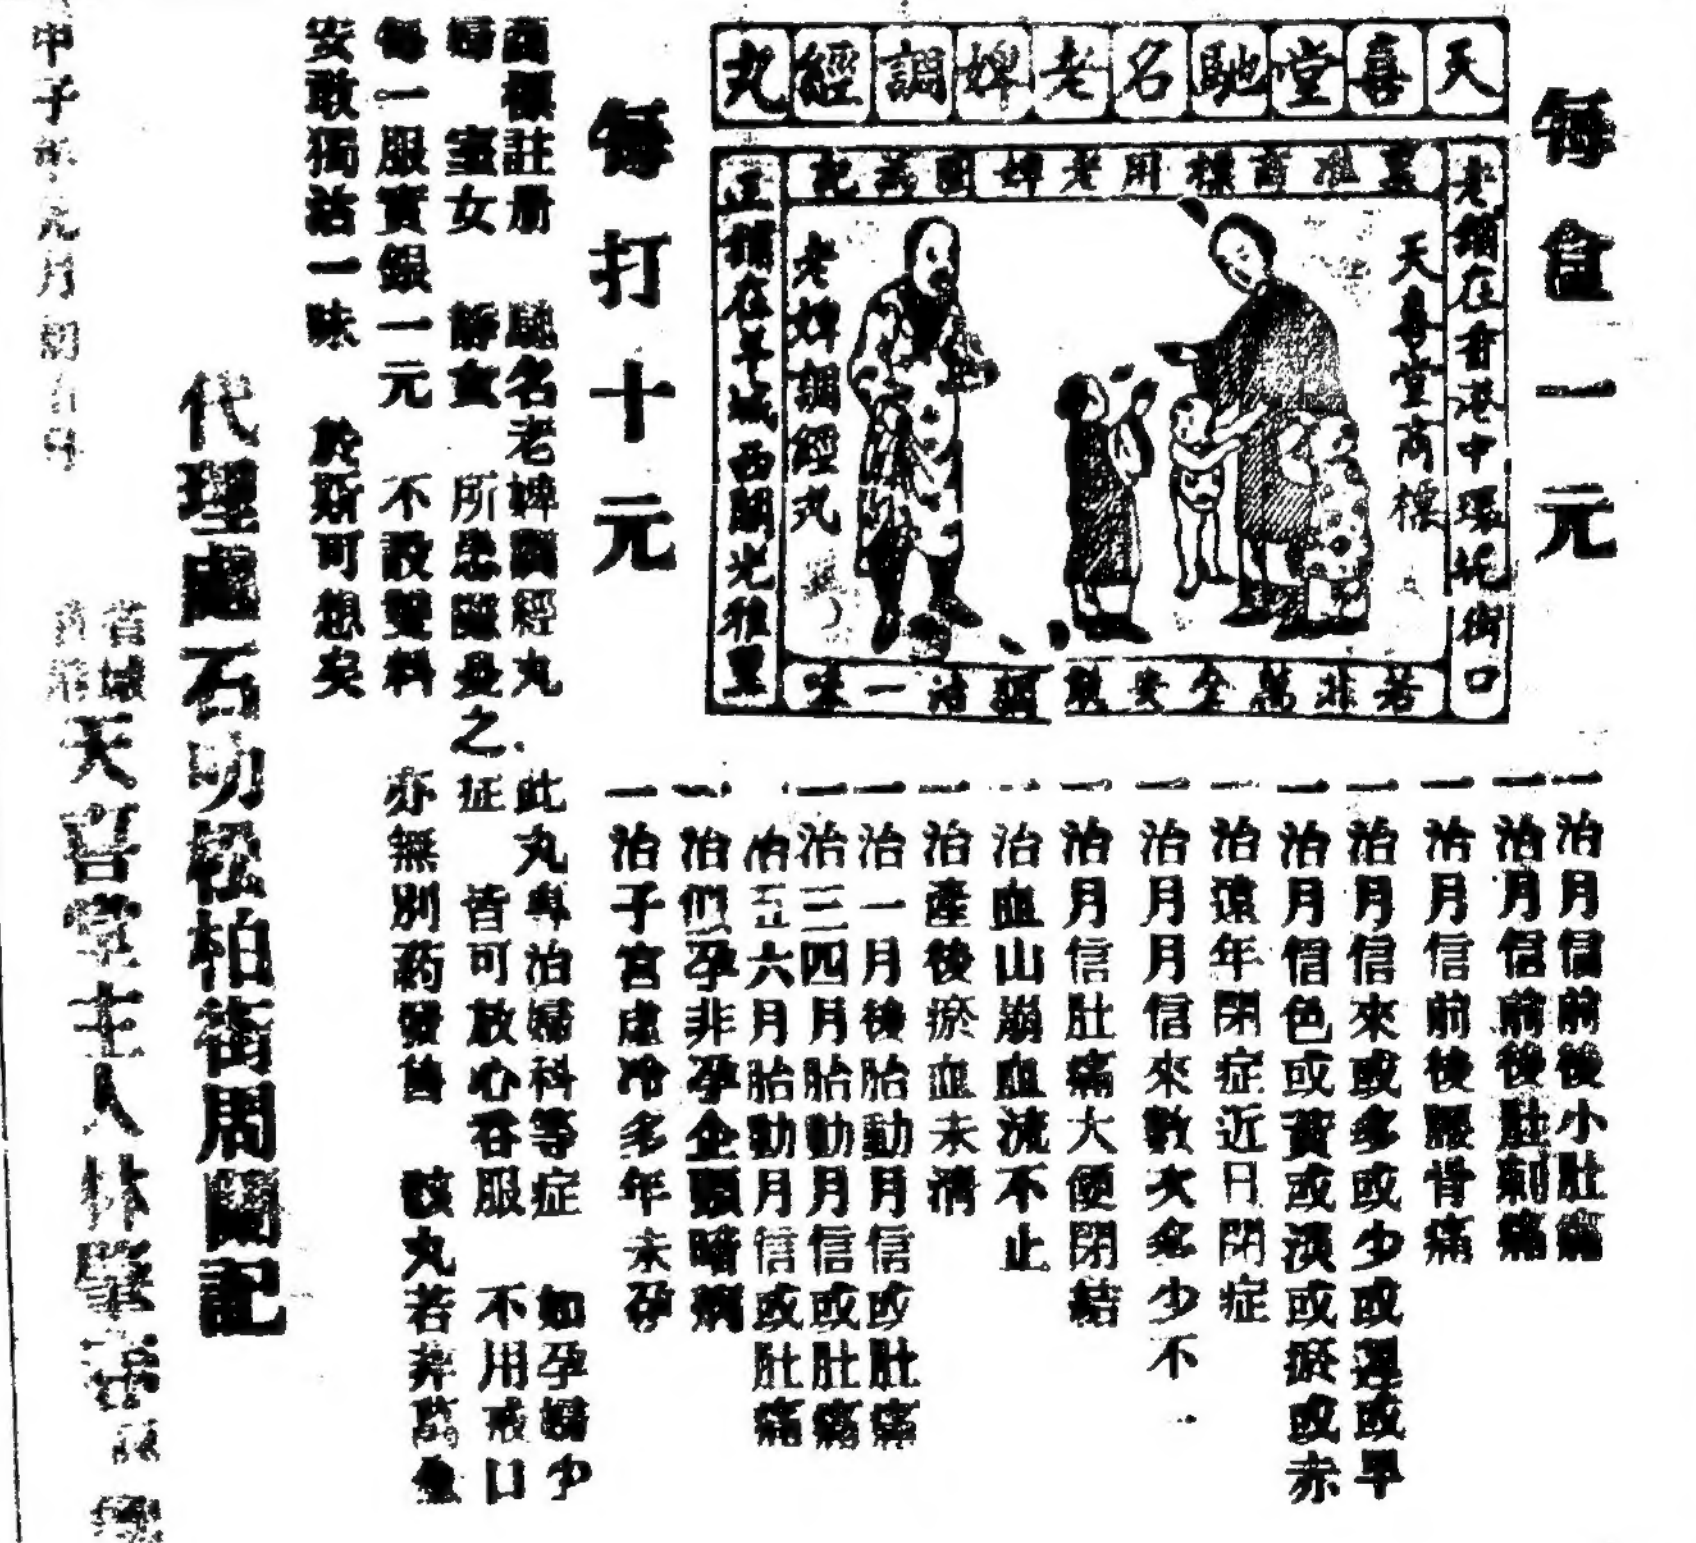 天喜堂馳名老婢調經丸
每盒一元
老鋪在香港中環坭街口
蓋准商標用老婢圖為記
正鋪在羊城西關光雅里
若非萬全安敢獨沽一味
天喜堂商標
老婢調經丸
每打十元
一治月信前後小肚痛
一治月信前後肚刺痛
一治月信前後腰骨痛
一治月信來或多或少或遲或早
一治月信色或黃或淡或瘀或赤
一治遠年閉症近日閉症
一治月月信來數次多少不一
一治月信肚痛大便閉結
一治血山崩血流不止
一治產後瘀血未清
一治一月後胎動月信或肚痛
一治三四月胎動月信或肚痛
一治五六月胎動月信或肚痛
一治似孕非孕企頭暗病
一治子宮虛冷多年未孕
商標註册 馳名老婢調經丸 此丸專治婦科等症 如孕婦少
婦 室女 靜女 所患隱曼之症 皆可放心吞服 不用戒口
每一服實銀一元 不設雙料 亦無別葯發售 該丸若非萬全
安敢獨沽一味 於斯可想矣
代理處石叻松柏街周蘭記
省城 天喜堂主人林肇
甲子年元月